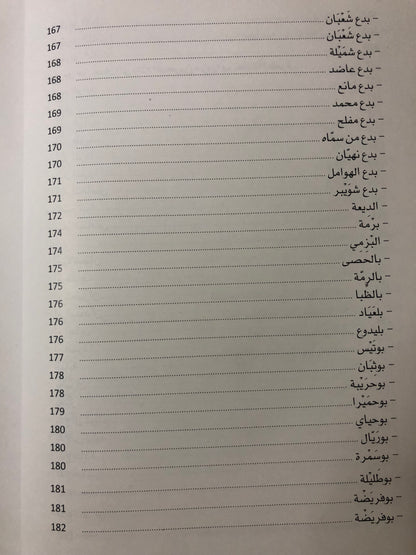 – بدع شَعْبَان ........ 167
– بدع شَعْبَان ........ 167
– بدع شمَيْلة ........ 168
– بدع عاضد ........ 168
– بدع مانع ........ 168
– بدع محمد ........ 169
– بدع مفلح ........ 169
– بدع من سمّاه ........ 170
– بدع نهيّان ........ 170
– بدع الهوامل ........ 171
– بدع شوَيْبر ........ 171
– الديعة ........ 172
– برْمَة ........ 174
– البْزمِي ........ 174
– بالحصى ........ 175
– بالرمّة ........ 175
– بالظّبا ........ 176
– بلعيَاد ........ 176
– بليدوع ........ 176
– بوتَيْس ........ 177
– بوثبَان ........ 178
– بوحرَيْبة ........ 178
– بوحمَيْرا ........ 179
– بوحياي ........ 180
– بوريَال ........ 180
– بوسَمْرة ........ 180
– بوطليلة ........ 181
– بوفريضَة ........ 181
– بوفريضَة ........ 182